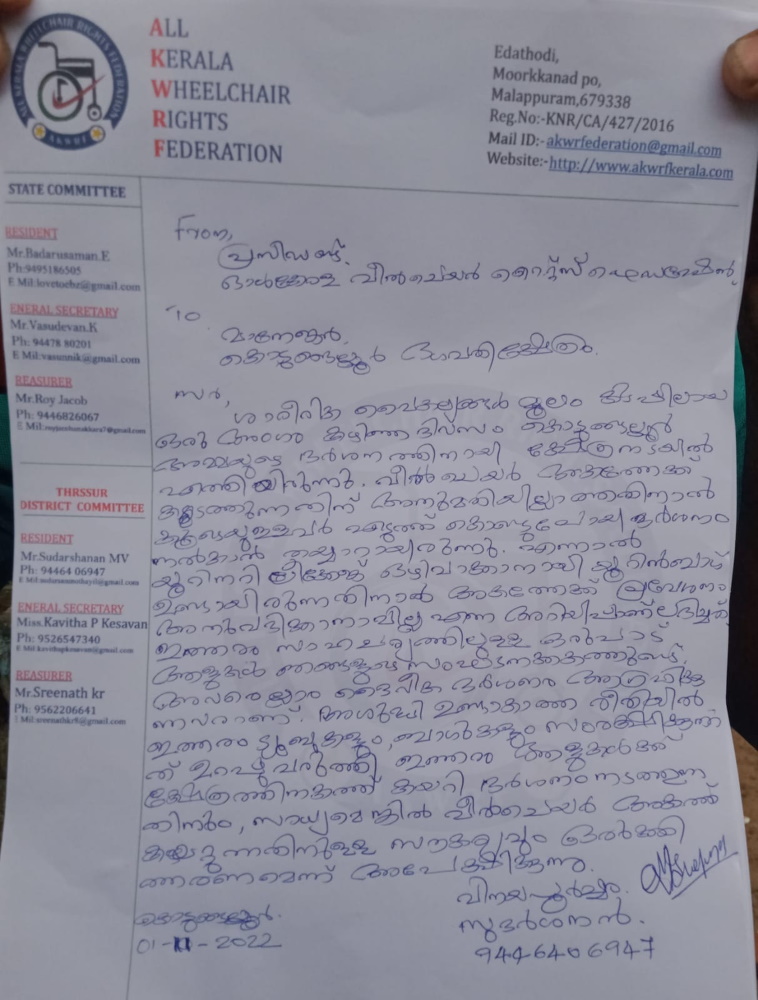 ALL
KERALA
WHEELCHAIR
RIGHTS
FEDERATION
ALL KERALA WHEELCHAIR RIGHTS FEDERATION
AKWRF
Edathodi,
Moorkkanad po,
Malappuram,679338
Reg.No:-KNR/CA/427/2016
Mail ID:-akwrfederation@gmail.com
Website:-http://www.akwrfkerala.com
STATE COMMITTEE
RESIDENT
Mr.Badarusaman.E
Ph:9495186505
E Mil:lovetoebz@gmail.com
ENERAL SECRETARY
Mr.Vasudevan.K
Ph: 94478 80201
E Mil:vasunnik@gmail.com
REASURER
Mr.Roy Jacob
Ph: 9446826067
THRSSUR
DISTRICT COMMITTEE
RESIDENT
Mr.Sudarshanan MV
Ph: 94464 06947
ENERAL SECRETARY
Miss.Kavitha P Kesavan
Ph: 9526547340
E Mil:kavithapkesavan@gmail.com
REASURER
Mr.Sreenath kr
Ph: 9562206641
E Mil:sreenathkr8@gmail.com
From,
പ്രസിഡണ്ട്.
ഓൾകേരള വീൽചെയർ റൈറ്റ്സ് ഫെഡറേഷൻ,
To
മാനേജർ,
കൊടുങ്ങല്ലൂർ ഭഗവതിക്ഷേത്രം.
സർ,
ശാരീരിക വൈകല്യങ്ങൾ മൂലം കിടപ്പിലായ
ഒരു അംഗം കഴിഞ്ഞ ദിവസം കൊടുങ്ങല്ലൂർ
അമ്മയുടെ ദർശനത്തിനായി ക്ഷേത്രനടയിൽ
എത്തിയിരുന്നു. വീൽചെയർ അകത്തേക്ക്
കടത്തുന്നതിന് അനുമതിയില്ലാത്തതിനാൽ
കൂടെയുള്ളവർ എടുത്ത് കൊണ്ടുപോയി ദർശനം
നൽകാൻ തയ്യാറായിരുന്നു. എന്നാൽ
യൂറിനറി ഒഴിവാക്കാനായി യൂറിൻബാഗ്
ഉണ്ടായിരുന്നതിനാൽ അകത്തേക്ക് പ്രവേശനം
അനുവദിക്കാനാവില്ല എന്ന അറിയിപ്പാണ് ലഭിച്ചത്
ഇത്തരം സാഹചര്യത്തിലുള്ള ഒരുപാട്
ആളുകൾ ഞങ്ങളുടെ സംഘടനക്കകത്തുണ്ട്.
അവരെല്ലാം ദൈവീക ദർശനം ആഗ്രഹിക്കു
ന്നവരാണ്. അശുദ്ധി ഉണ്ടാകാത്ത രീതിയിൽ
ഇത്തരം ട്യൂബുകളും, ബാഗുകളും സംരക്ഷിക്കുന്ന
ത് ഉറപ്പുവരുത്തി ഇത്തരം ആളുകൾക്ക്
ക്ഷേത്രത്തിനകത്ത് കയറി ദർശനം നടത്തുന്ന
തിനും, സാധ്യമെങ്കിൽ വീൽചെയർ അകത്ത്
കയറ്റുന്നതിനുള്ള സൗകര്യവും ഒരുക്കി
ത്തരണമെന്ന് അപേക്ഷിക്കുന്നു.
വിനയപൂർവ്വം.
സുദർശനൻ.
9446406947
കൊടുങ്ങല്ലൂർ.
01-11-2022